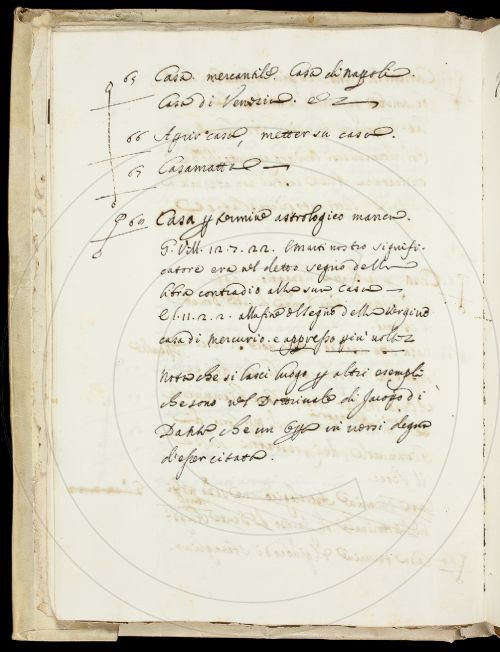 65 Casa mercantile. Casa di Nappoli.
Casa di Venezia. e
66 Aprir casa, metter su casa.
67 Casamatta
60 Casa per termine astrologico manca.
G. Vill. 12. 7. 22. l'Marti nostro signifi-
catore era nel detto segno della
libra contradio alla sua casa
E l. 11. 2. 2. alla fine del segno della vergine
casa di mercurio. e appresso più volte
Nota che si lasci luogo per altri esempli
che sono nel Dottrinale di Jacopo di
Dante, che un in versi degno
d'esser citato.